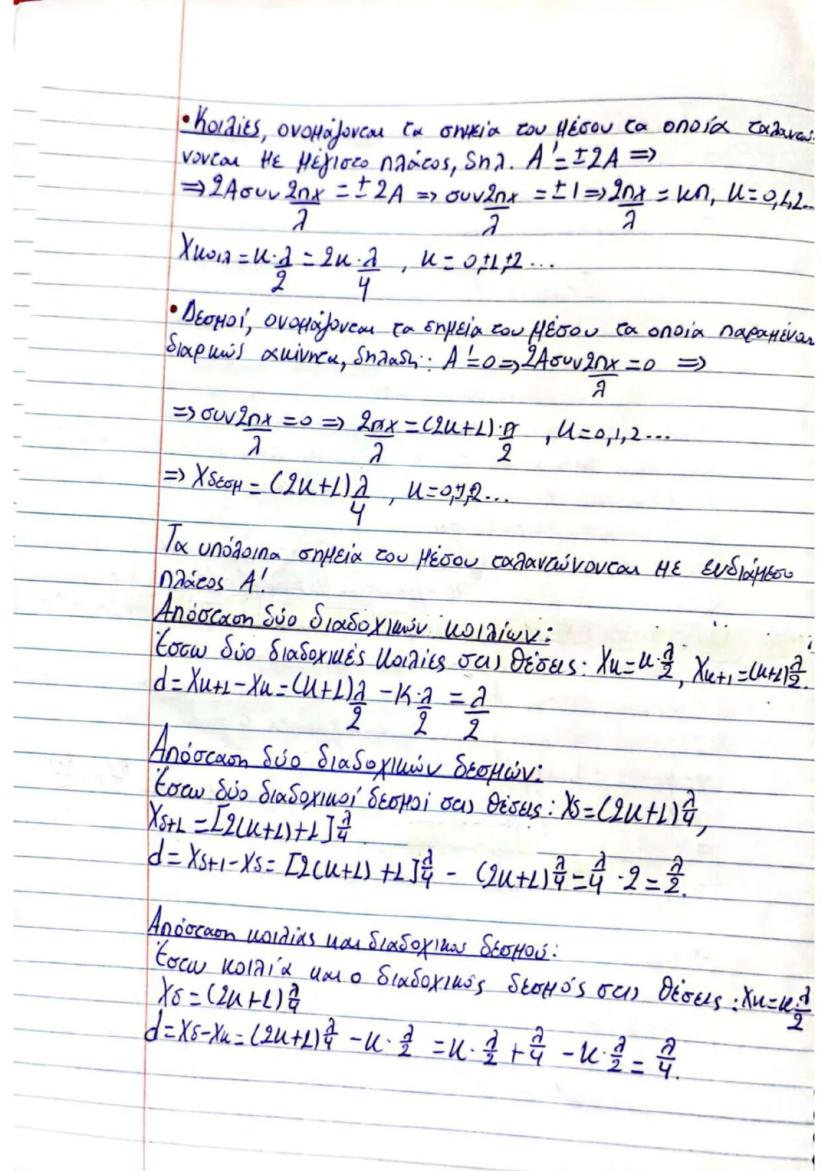 • Κοιλίες, ονομάζονται τα σημεία του μέσου τα οποία ταλαντώ-
νονται με μέγιστο πλάτος, δηλ. A' = ±2A =>
=> 2Aσυν 2πx/λ = ±2A => συν 2πx/λ = ±1 => 2πx/λ = κπ, κ=0,1,2...
Xκοιλ = κ·λ/2 = 2κ·λ/4 , κ = 0,±1,±2...
• Δεσμοί, ονομάζονται τα σημεία του μέσου τα οποία παραμένουν
διαρκώς ακίνητα, δηλαδή: A'=0 => 2Aσυν 2πx/λ = 0 =>
=> συν 2πx/λ = 0 => 2πx/λ = (2κ+1)·π/2 , κ=0,1,2...
=> Xδεσμ = (2κ+1) λ/4 , κ=0,1,2...
Τα υπόλοιπα σημεία του μέσου ταλαντώνονται με ενδιάμεσο
πλάτος A'.
Απόσταση δύο διαδοχικών κοιλίων:
Έστω δύο διαδοχικές κοιλίες στις θέσεις: Xκ = κ·λ/2, Xκ+1 = (κ+1)λ/2.
d = Xκ+1 - Xκ = (κ+1) λ/2 - κ·λ/2 = λ/2
Απόσταση δύο διαδοχικών δεσμών:
Έστω δύο διαδοχικοί δεσμοί στις θέσεις: Xδ = (2κ+1) λ/4,
Xδ+1 = [2(κ+1)+1] λ/4
d = Xδ+1 - Xδ = [2(κ+1)+1] λ/4 - (2κ+1) λ/4 = λ/4 · 2 = λ/2.
Απόσταση κοιλίας και διαδοχικου δεσμού:
Έστω κοιλία και ο διαδοχικός δεσμός στις θέσεις: Xκ = κ·λ/2
Xδ = (2κ+1) λ/4
d = Xδ - Xκ = (2κ+1) λ/4 - κ·λ/2 = κ·λ/2 + λ/4 - κ·λ/2 = λ/4.